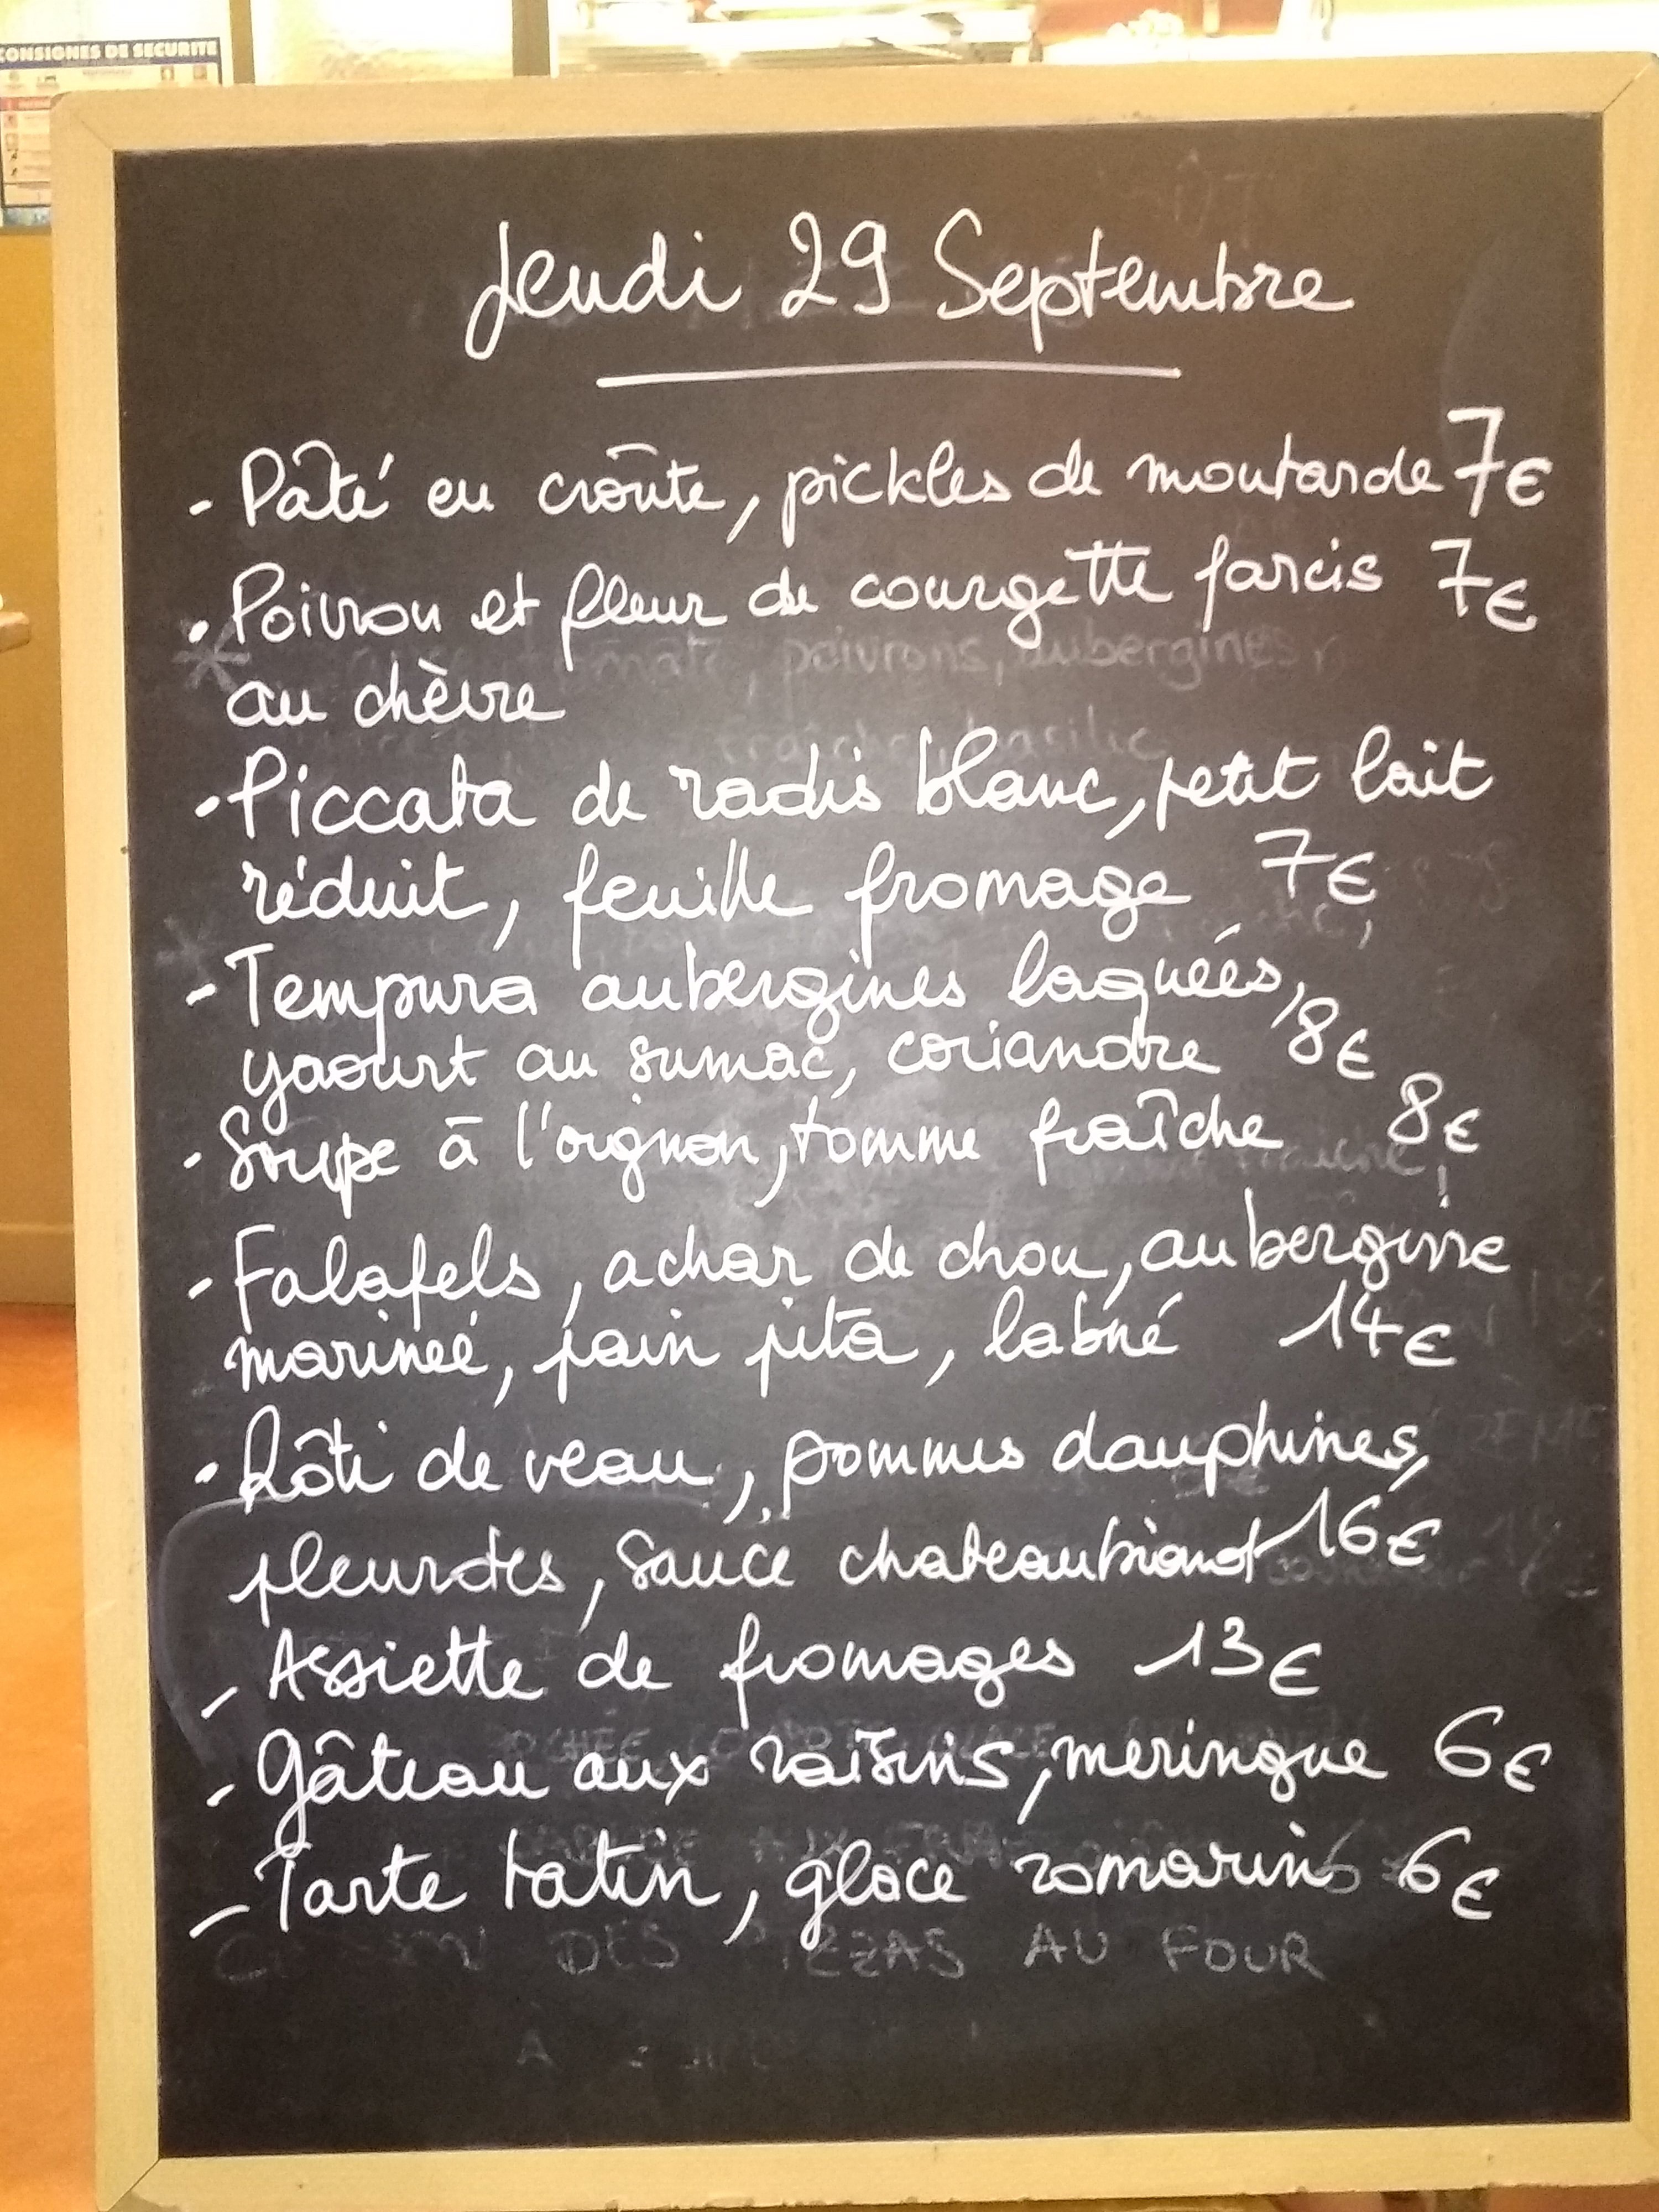 CONSIGNES DE SECURITE
Jeudi 29 Septembre
- Pâté en croûte, pickles de moutarde 7€
- Poivron et fleur de courgette farcis 7€
au chèvre
- Piccata de radis blanc, petit lait
réduit, feuille fromage 7€
- Tempura aubergines laquées,
yaourt au sumac, coriandre 8€
- Soupe à l'oignon, tomme fraîche 8€
- Falafels, achar de chou, aubergine
marineé, pain pita, labné 14€
- Rôti de veau, pommes dauphines,
pleurotes, sauce chateaubriand 16€
- Assiette de fromages 13€
- Gâteau aux raisins, meringue 6€
- Tarte tatin, glace romarin 6€
poivrons, aubergines
basilic
DES PIZZAS AU FOUR